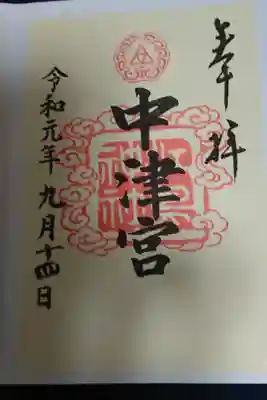 奉拝
中津宮
令和元年九月十四日